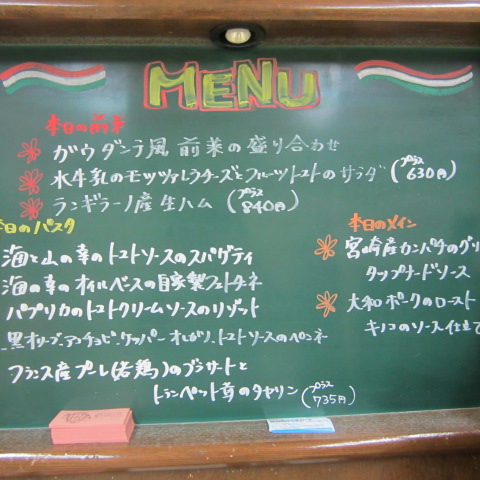 MENU
本日の前菜
ガウダンテ風 前菜の盛り合わせ
水牛乳のモッツァレラチーズとフルーツトマトのサラダ (プラス630円)
ランギラーノ産 生ハム (プラス840円)
本日のパスタ
海と山の幸のトマトソースのスパゲティ
海の幸のオイルベースの自家製フェトチーネ
パプリカのトマトクリームソースのリゾット
黒オリーブ、アンチョビ、ケッパー、オレガノ、トマトソースのペンネ
フランス産プレ(若鶏)のブラサートと
トランペット茸のタヤリン (プラス735円)
本日のメイン
宮崎産カンパチのグリ
タップナードソース
大和ポークのロースト
キノコのソース仕立て